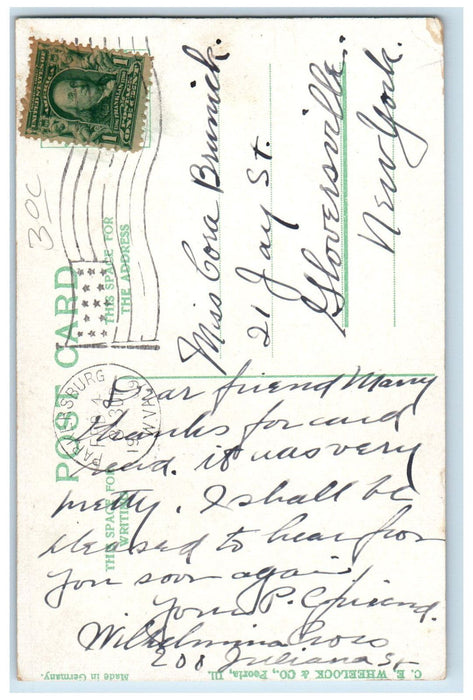 30c
POST CARD
THIS SPACE FOR
WRITING
THIS SPACE FOR
THE ADDRESS
PARKERSBURG
W.VA.
Miss Cora Brunick.
21 Jay St.
Gloversville.
New York.
Dear friend Many
thanks for card
read. it was very
pretty. I shall be
pleased to hear from
you soon again
Your P. C. friend.
Wilhelmina
200 Juliana St
C. E. WHEELOCK & CO., Peoria, Ill.
Made in Germany.